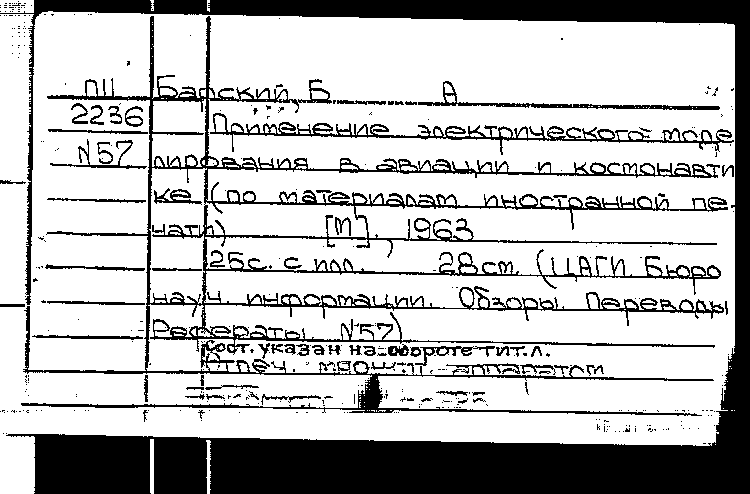 П11 Барский, Б А
2236 Применение электрического моде
N57 лирования в авиации и космонавти
ке (по материалам иностранной пе-
чати) [М]., 1963
25с. с илл. 28см. (ЦАГИ. Бюро
науч. информации. Обзоры. Переводы
Рефераты. N57)
Сост. указан на обороте тит.л.
Отпеч. множит. аппаратом